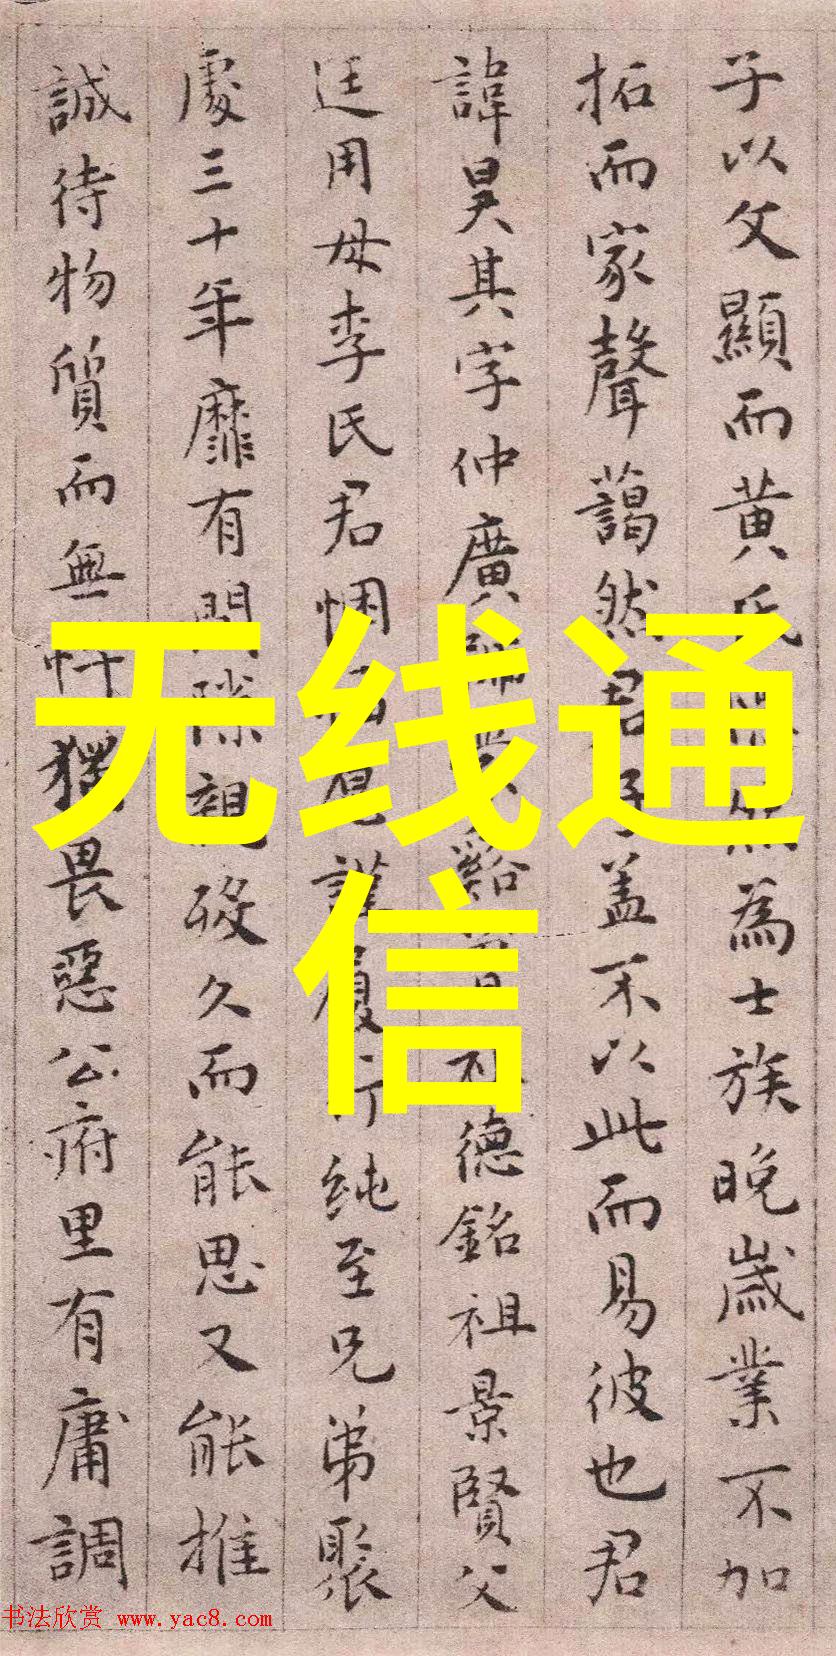 子以父顯而黄氏為士族晚歲業不加
拓而家聲藹然君子蓋不以此而易彼也君
諱昊其字仲廣德銘祖景賢父
廷用母李氏君悃謹履行純至兄弟聚
處三十年靡有間隙親歿久而能思又能推
誠待物質而無忤猶畏惡公府里有庸調
无线通
信
书法欣赏 www.yac8.com